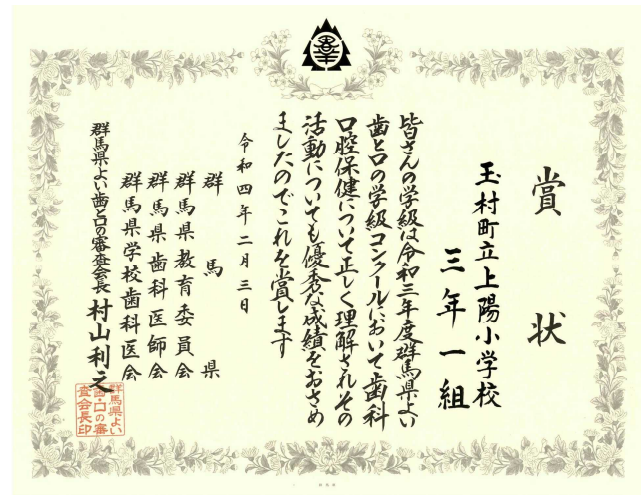 賞状
玉村町立上陽小学校
三年一組
皆さんの学級は令和三年度群馬県よい
歯と口の学級コンクールにおいて歯科
口腔保健について正しく理解されその
活動についても優秀な成績をおさめ
ましたのでこれを賞します
令和四年二月三日
群馬県
群馬県教育委員会
群馬県歯科医師会
群馬県学校歯科医会
群馬県よい歯と口の審査会長 村山利之
群馬県よい
歯・口の審
査会長印